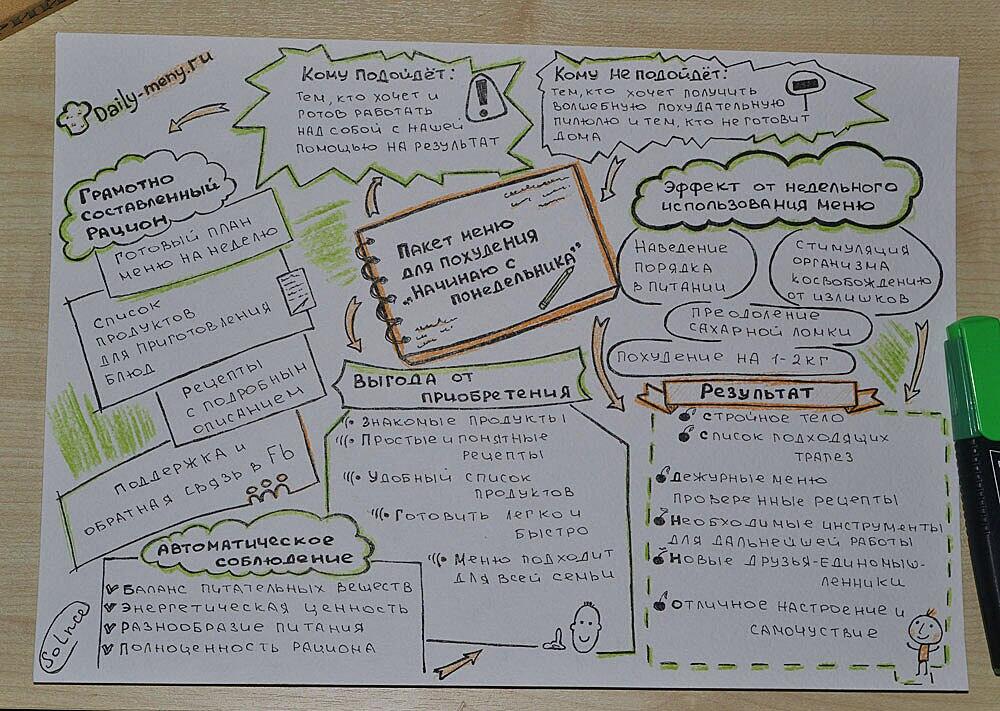 Daily-meny.ru
Кому подойдёт:
тем, кто хочет и
готов работать
над собой с нашей
помощью на результат
Кому не подойдёт:
тем, кто хочет получить
волшебную похудательную
пилюлю и тем, кто не готовит
дома
Грамотно
составленный
рацион
Готовый план
меню на неделю
Список
продуктов
для приготовления
блюд
Рецепты
с подробным
описанием
Поддержка и
обратная связь в Fb
Пакет меню
для похудения
„Начинаю с
понедельника"
Эффект от недельного
использования меню
Наведение
порядка
в питании
Стимуляция
организма
к освобождению
от излишков
Преодоление
сахарной ломки
Похудение на 1-2 кг
Выгода от
приобретения
Знакомые продукты
Простые и понятные
рецепты
Удобный список
продуктов
Готовить легко и
быстро
Меню подходит
для всей семьи
Результат
стройное тело
список подходящих
трапез
Дежурные меню
проверенные рецепты
Необходимые инструменты
для дальнейшей работы
Новые друзья-единомыш-
ленники
Отличное настроение и
самочуствие
Автоматическое
соблюдение
Баланс питательных веществ
Энергетическая ценность
Разнообразие питания
Полноценность рациона
Solnce